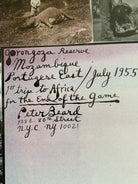 Gorongoza Reserve
Mozambique
Portugese East / July 1955
1st trip to Africa
for the End of the Game
Peter Beard
N.Y.C. NY 10021